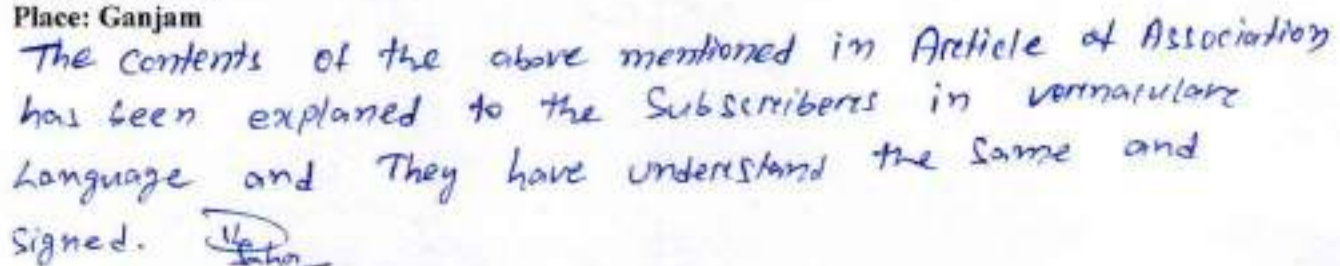 Place: Ganjam
The Contents of the above mentioned in Areticle of Association
has been explaned to the Subscreiberes in vernaculare
Language and They have underestand the Same and
Signed.